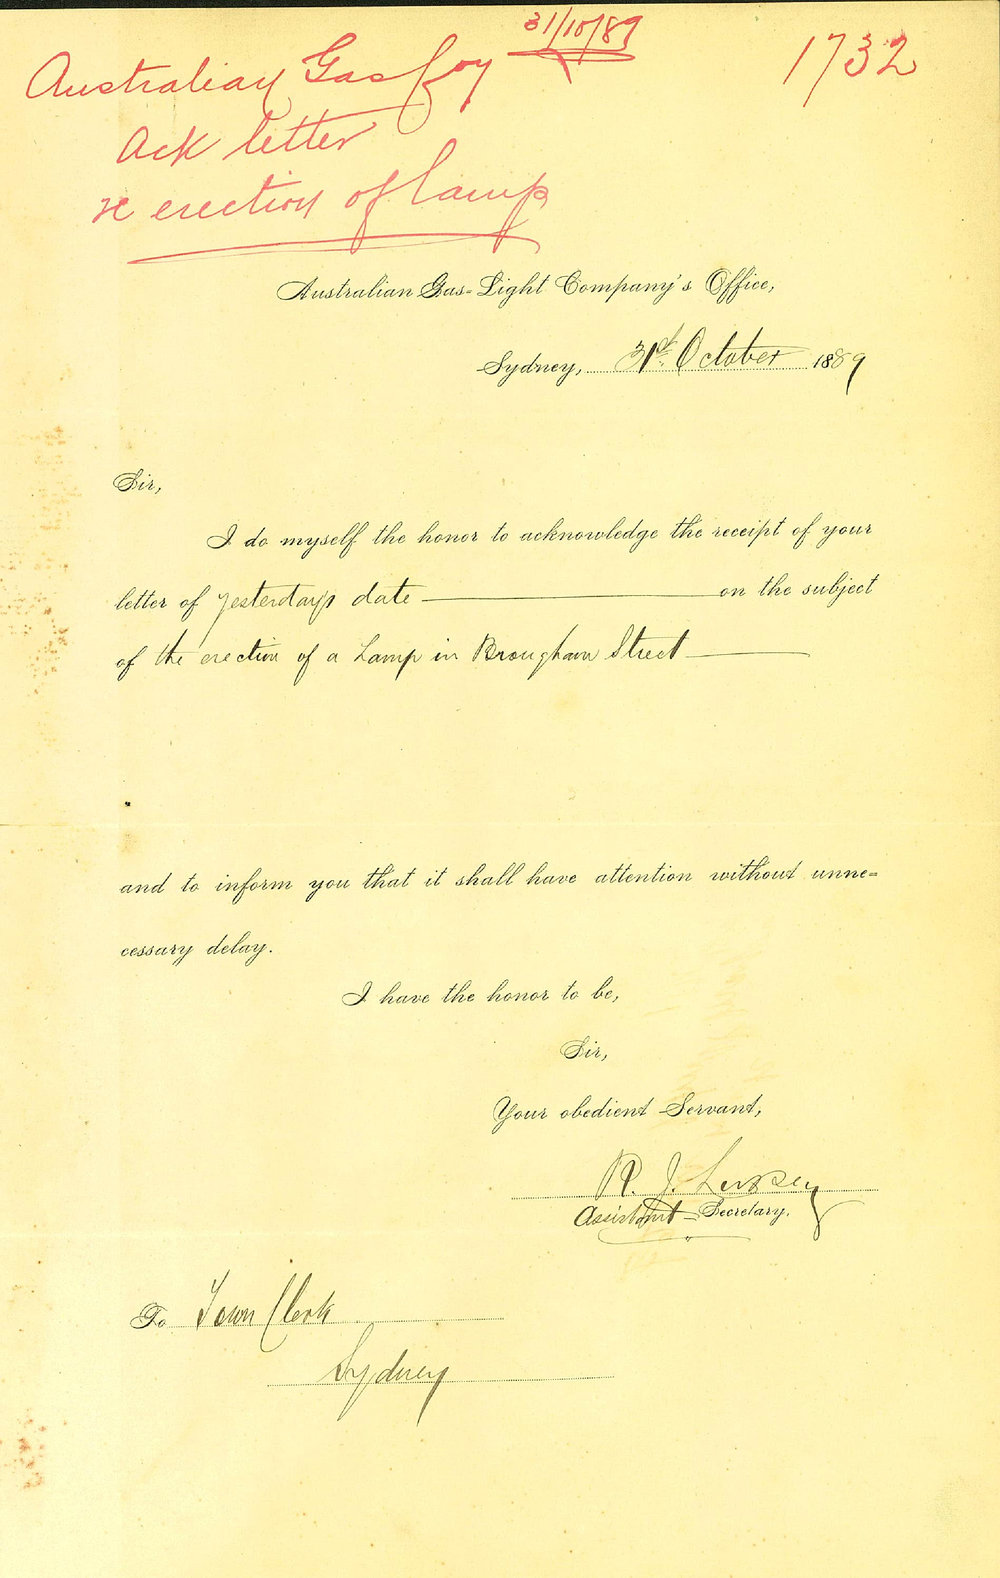 31/10/89
1732
Australian Gas Coy
Ack letter
re erection of lamp
Australian Gas-Light Company's Office,
Sydney, 31st October 1889
Sir,
I do myself the honor to acknowledge the receipt of your
letter of yesterdays date on the subject
of the erection of a Lamp in Brougham Street
and to inform you that it shall have attention without unne=
cessary delay.
I have the honor to be,
Sir,
Your obedient Servant,
R. J.
Assistant Secretary.
To Town Clerk
Sydney